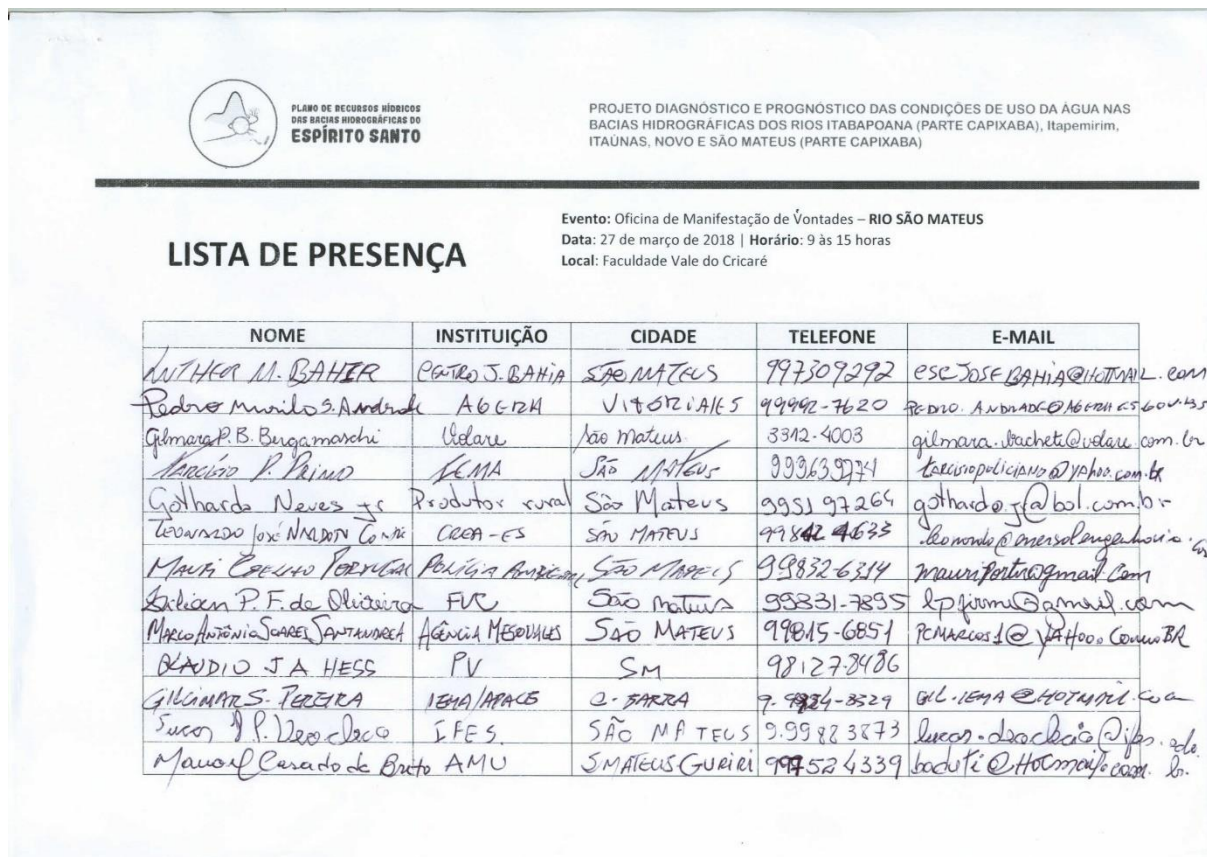 PLANO DE RECURSOS HÍDRICOS
DAS BACIAS HIDROGRÁFICAS DO
ESPÍRITO SANTO
PROJETO DIAGNÓSTICO E PROGNÓSTICO DAS CONDIÇÕES DE USO DA ÁGUA NAS
BACIAS HIDROGRÁFICAS DOS RIOS ITABAPOANA (PARTE CAPIXABA), Itapemirim,
ITAÚNAS, NOVO E SÃO MATEUS (PARTE CAPIXABA)
LISTA DE PRESENÇA
Evento: Oficina de Manifestação de Vontades – RIO SÃO MATEUS
Data: 27 de março de 2018 | Horário: 9 às 15 horas
Local: Faculdade Vale do Cricaré
NOME INSTITUIÇÃO CIDADE TELEFONE E-MAIL
M. BAHIER CENTRO J. BAHIA SÃO MATEUS 997309292 ESCJOSEBAHIA@HOTMAIL.com
Pedro Murilo S. Andrade AGERH VITÓRIA/ES 99992-7620 PEDRO.ANDRADE@AGERH.ES.GOV.BR
Gilmara P. B. Bergamaschi Volare São Mateus 3312-4003 gilmara.bachete@volare.com.br
Tarcísio P. SÃO MATEUS 999639774 tarcisiopoliciano@yahoo.com.br
Gothardo Neves Jr Produtor rural São Mateus 9951 97264 gothardo_j@bol.com.br
LEONARDO JOSÉ CREA-ES SÃO MATEUS leonardo@enersolengenharia.
MAURI COELHO POLÍCIA AMBIENTAL SÃO MATEUS 99832-6314 mauriportu@gmail.com
Lilian P. F. de Oliveira FVC São Mateus 99831-7895 lpfirme@gmail.com
MARCO ANTÔNIO SOARES SANTANDREA AGÊNCIA SÃO MATEUS 99815-6851 PCMARCOS1@YAHOO.
CLAUDIO J A HESS PV SM 98127-8486
GILCIMAR S. PEREIRA IEMA/APACB C. BARRA GIL.IEMA@HOTMAIL.com
Lucas IFES SÃO MATEUS 9.99883873 lucas.deoclecio@ifes.edu.
Manoel Casado de Brito AMU S MATEUS GURIRI 997524339 baduti@Hotmail.com.